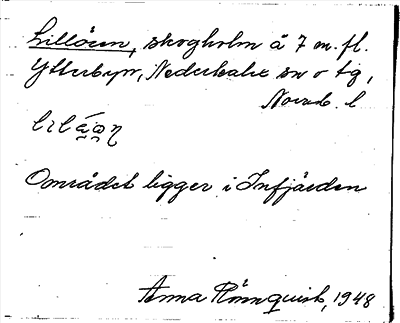 Lillören, skogholm å 7 m. fl.
Ytterbyn, Nederkalix sn o tg,
Norrb. l
Området ligger i Infjärden
Anna Rönnquist, 1948